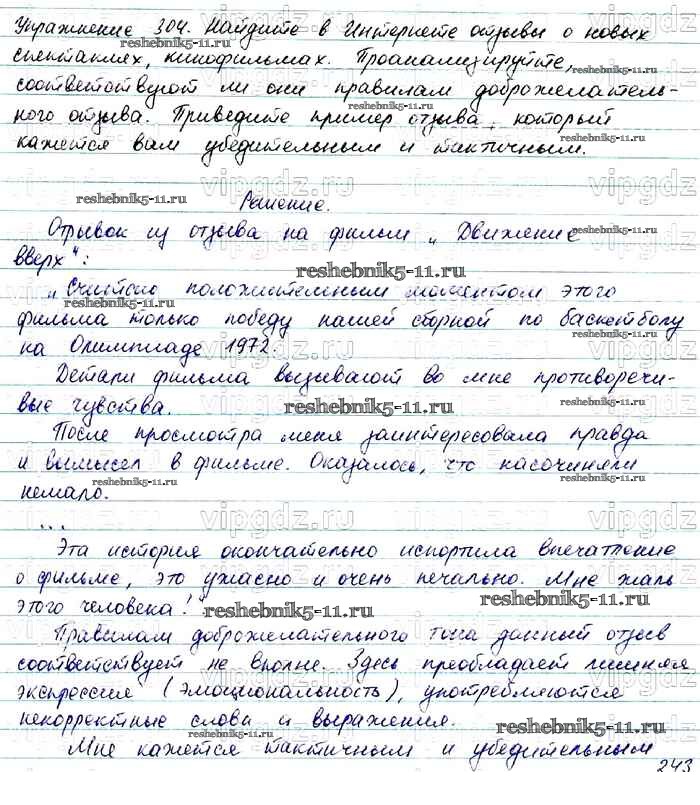 Упражнение 304. Найдите в Интернете отзывы о новых
спектаклях, кинофильмах. Проанализируйте,
соответствуют ли они правилам доброжелатель-
ного отзыва. Приведите пример отзыва, который
кажется вам убедительным и тактичным.
Решение.
Отрывок из отзыва на фильм „Движение
вверх":
„Считаю положительным моментом этого
фильма только победу нашей сборной по баскетболу
на Олимпиаде 1972.
Детали фильма вызывают во мне противоречи-
вые чувства.
После просмотра меня заинтересовала правда
и вымысел в фильме. Оказалось, что насочиняли
немало.
...
Эта история окончательно испортила впечатление
о фильме, это ужасно и очень печально. Мне жаль
этого человека!"
Правилам доброжелательного тона данный отзыв
соответствует не вполне. Здесь преобладает лишняя
экспрессия (эмоциональность), употребляются
некорректные слова и выражения.
Мне кажется тактичным и убедительным
243
reshebnik5-11.ru
vipgdz.ru